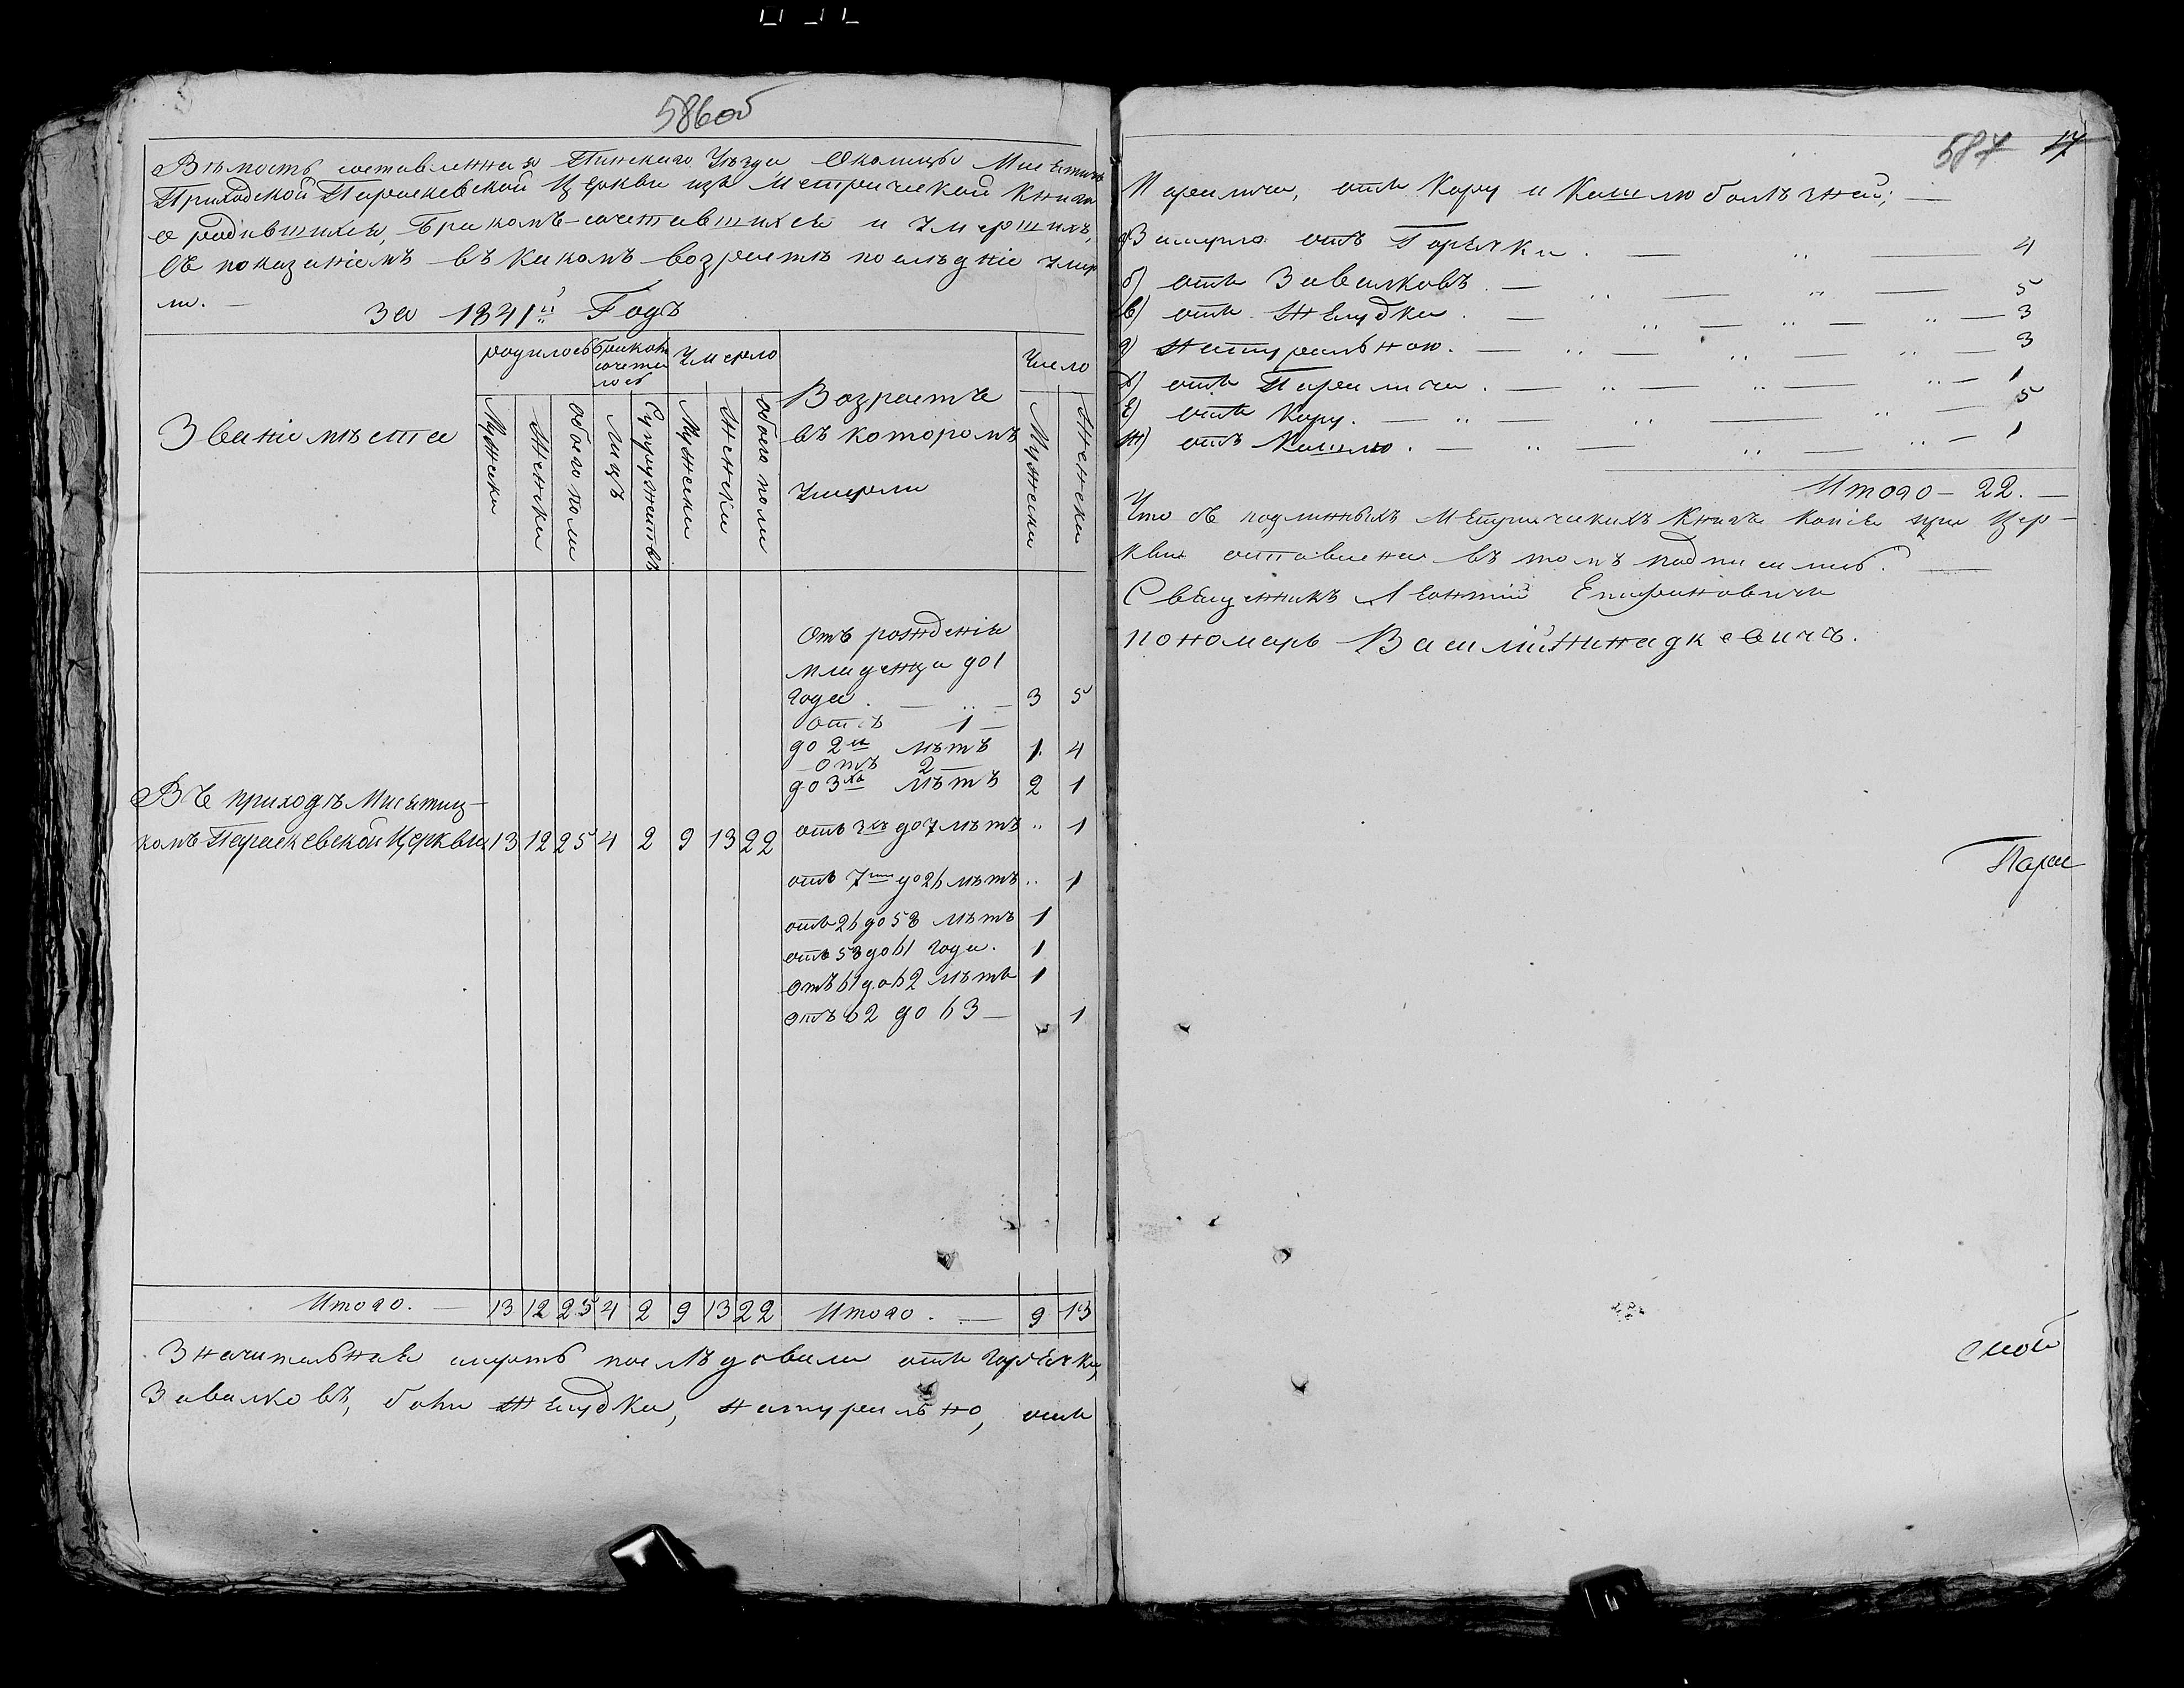 586об
Вѣмость составленная Пинскаго Уѣзда Околицы Мисятичь
Приходской Параскевской Церкви изъ Метрической Книги
о родившихся, Бракомъ-сочетавшихся и Умершихъ,
Съ показаніемъ въ какомъ возрастѣ послѣдніе умер
ли. —
За 1841й Годъ
Званіе мѣста
родилось
Бракомъ сочеталось
Умерло
Возрастъ въ которомъ Умерли
Число
Мужеска
Женска
Обоего пола
Лицъ
Супружествъ
Мужеска
Женска
Обоего пола
Мужеска
Женска
Отъ рожденія
младенца до 1
года . — .. — 3 5
Отъ 1 —
до 2хъ лѣтъ 1. 4
Отъ 2 —
до 3хъ лѣтъ 2 1
Въ приходѣ Мисятиц-
комъ Параскевской Церквы 13 12 25 4 2 9 13 22
отъ 3хъ до 7 лѣтъ .. 1
отъ 7ми до 26 лѣтъ .. 1
отъ 26 до 58 лѣтъ 1
отъ 58 до 61 года. 1
отъ 61 до 62 лѣтъ 1
отъ 62 до 63 — 1
Итого. — 13 12 25 4 2 9 13 22 Итого. — 9 13
Значительная смерть послѣдовала отъ Горячки,
Завалковъ, боли Желудка, натурально, отъ
587 17
Паралича, отъ Кору и Кашлю болѣзней; —
Умерло отъ Горячки . — .. — 4
б) отъ Завалковъ . — .. — .. — 5
в) отъ Желудка . — .. — .. — .. — 3
г) Натуральною . — .. — .. — .. — 3
д) отъ Паралича . — .. — .. — .. — 1
е) отъ Кору . — .. — .. — .. — 5
ж) отъ Кашлю . — .. — .. — .. — 1
Итого — 22. —
Что съ подлинныхъ Метрическихъ Книгъ копія при Цер-
квы оставлена въ томъ подписались. —
Священникъ Леонтій Епифановичъ
пономарь Василій
Пара